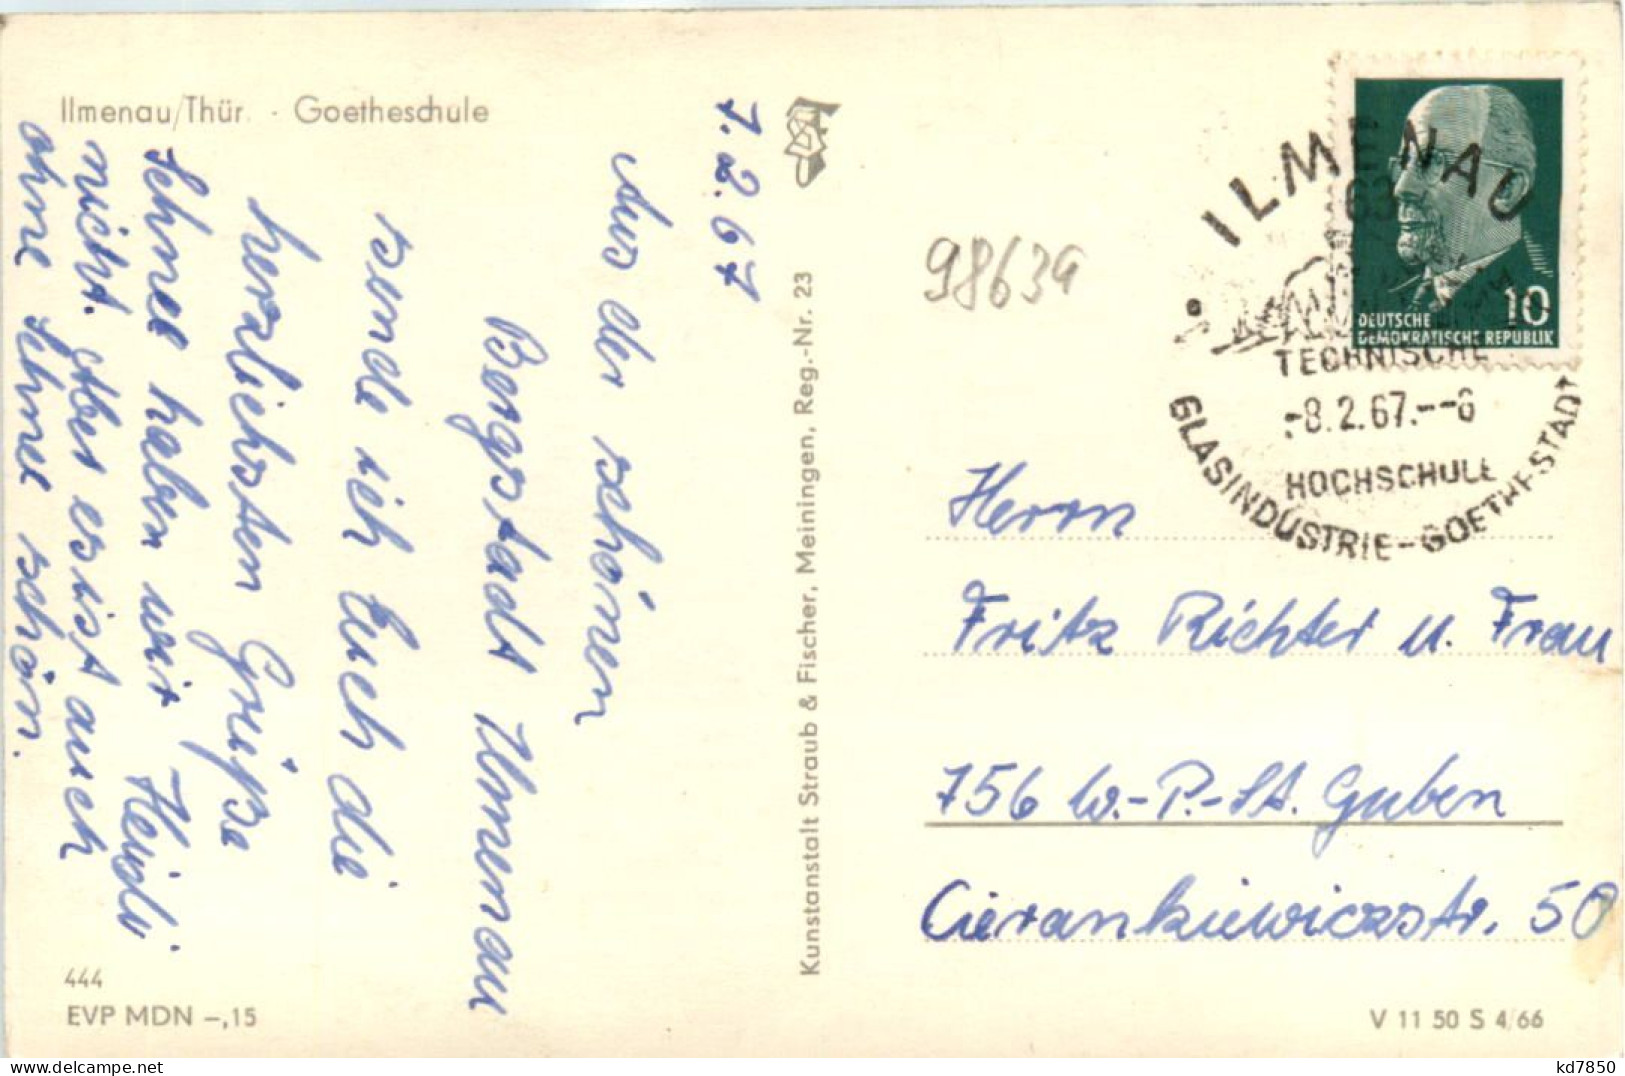 Ilmenau/Thür. · Goetheschule
7.2.67
Aus der schönen
Bergstadt Ilmenau
sende ich Euch die
herzlichsten Grüße
Heidi
Schnee haben wir
nicht. Aber es ist auch
ohne Schnee schön.
444
EVP MDN –,15
Kunstanstalt Straub & Fischer, Meiningen, Reg.-Nr. 23
98639
10
DEUTSCHE
DEMOKRATISCHE REPUBLIK
ILMENAU
63
TECHNISCHE
-8.2.67.--6
HOCHSCHULE
GLASINDUSTRIE-GOETHESTADT
Herrn
Fritz Richter u. Frau
756 W.-P.-St. Guben
Cierankiewiczstr. 50
V 11 50 S 4/66
kd7850